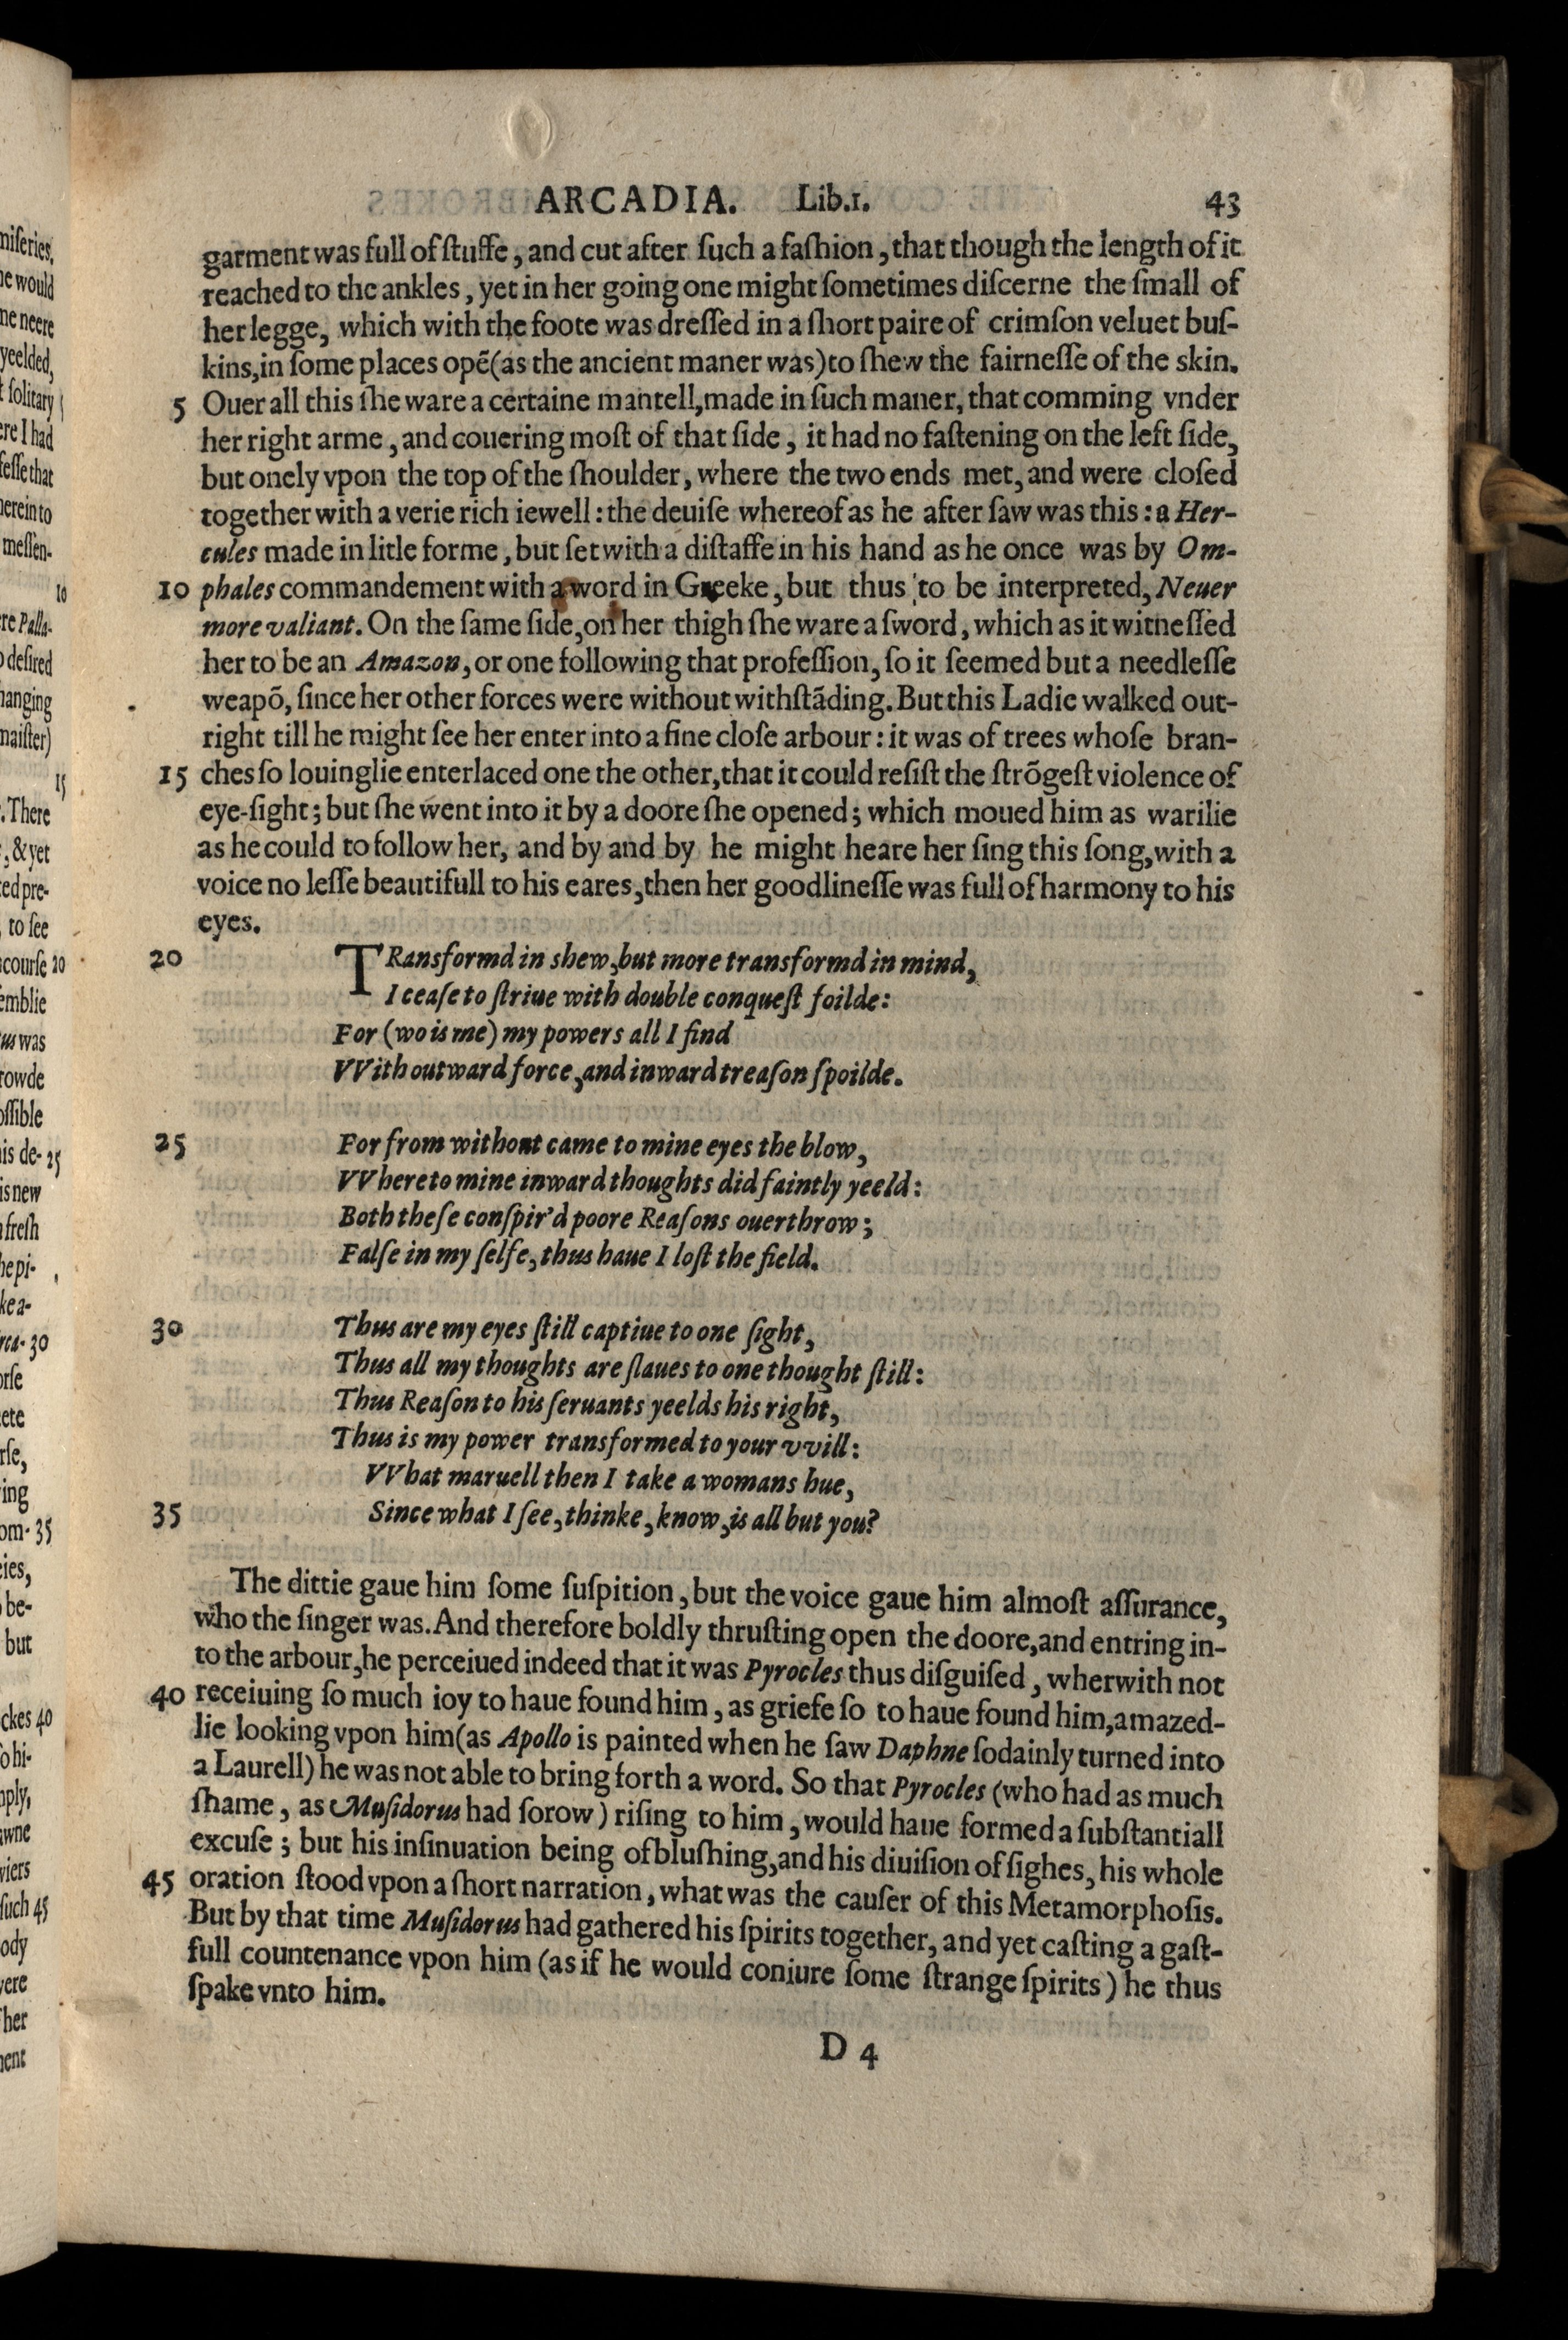 ARCADIA. Lib.1. 43
garment was full of ſtuffe, and cut after ſuch a faſhion, that though the length of it
reached to the ankles, yet in her going one might ſometimes diſcerne the ſmall of
her legge, which with the foote was dreſſed in a ſhort paire of crimſon veluet buſ-
kins, in ſome places opẽ (as the ancient maner was) to ſhew the fairneſſe of the skin.
5 Ouer all this ſhe ware a certaine mantell, made in ſuch maner, that comming vnder
her right arme, and couering moſt of that ſide, it had no faſtening on the left ſide,
but onely vpon the top of the ſhoulder, where the two ends met, and were cloſed
together with a verie rich iewell: the deuiſe whereof as he after ſaw was this: a Her-
cules made in litle forme, but ſet with a diſtaffe in his hand as he once was by Om-
10 phales commandement with a word in Greeke, but thus to be interpreted, Neuer
more valiant. On the ſame ſide, on her thigh ſhe ware a ſword, which as it witneſſed
her to be an Amazon, or one following that profeſſion, ſo it ſeemed but a needleſſe
weapõ, ſince her other forces were without withſtãding. But this Ladie walked out-
right till he might ſee her enter into a fine cloſe arbour: it was of trees whoſe bran-
15 ches ſo louinglie enterlaced one the other, that it could reſiſt the ſtrõgeſt violence of
eye-ſight; but ſhe went into it by a doore ſhe opened; which moued him as warilie
as he could to follow her, and by and by he might heare her ſing this ſong, with a
voice no leſſe beautifull to his eares, then her goodlineſſe was full of harmony to his
eyes.
20 TRansformd in shew, but more transformd in mind,
I ceaſe to ſtriue with double conqueſt foilde:
For (wo is me) my powers all I find
VVith outward force, and inward treaſon ſpoilde.
25 For from without came to mine eyes the blow,
VVhereto mine inward thoughts did faintly yeeld:
Both theſe conſpir'd poore Reaſons ouerthrow;
Falſe in my ſelfe, thus haue I loſt the field.
30 Thus are my eyes ſtill captiue to one ſight,
Thus all my thoughts are ſlaues to one thought ſtill:
Thus Reaſon to his ſeruants yeelds his right,
Thus is my power transformed to your vvill:
VVhat maruell then I take a womans hue,
35 Since what I ſee, thinke, know, is all but you?
The dittie gaue him ſome ſuſpition, but the voice gaue him almoſt aſſurance,
who the ſinger was. And therefore boldly thruſting open the doore, and entring in-
to the arbour, he perceiued indeed that it was Pyrocles thus diſguiſed, wherwith not
40 receiuing ſo much ioy to haue found him, as griefe ſo to haue found him, amazed-
lie looking vpon him (as Apollo is painted when he ſaw Daphne ſodainly turned into
a Laurell) he was not able to bring forth a word. So that Pyrocles (who had as much
ſhame, as Muſidorus had ſorow) riſing to him, would haue formed a ſubſtantiall
excuſe; but his inſinuation being of bluſhing, and his diuiſion of ſighes, his whole
45 oration ſtood vpon a ſhort narration, what was the cauſer of this Metamorphoſis.
But by that time Muſidorus had gathered his ſpirits together, and yet caſting a gaſt-
full countenance vpon him (as if he would coniure ſome ſtrange ſpirits) he thus
ſpake vnto him.
D 4